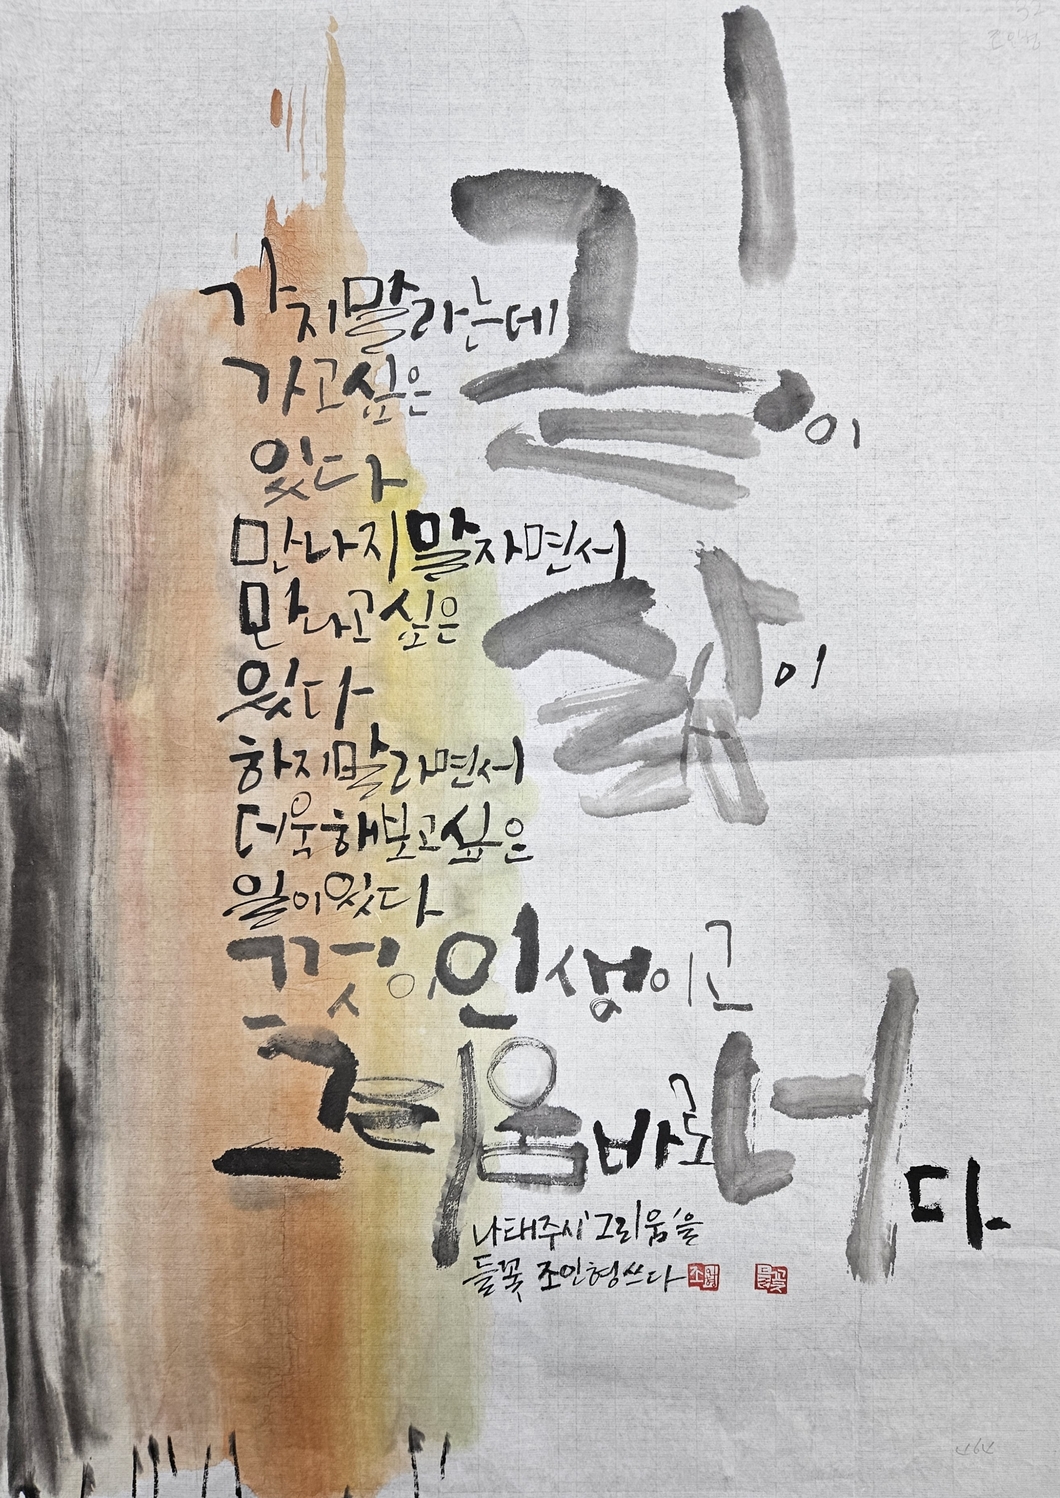 가지말라는데
가고싶은
길이
있다
만나지말자면서
만나고싶은
삶이
있다
하지말라면서
더욱해보고싶은
일이있다
그것이인생이고
그리움바로너다
나태주시'그리움'을
들꽃 조인형쓰다
들꽃
조인형